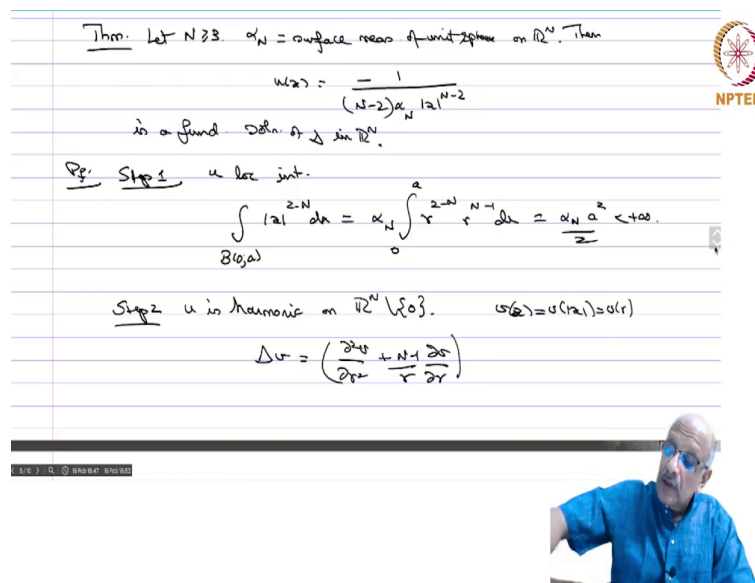 Thm. Let N ≥ 3. α_N = surface meas of unit sphere on ℝ^N. Then
u(x) = - 1 / ((N-2) α_N |x|^{N-2})
is a fund. Soln. of Δ in ℝ^N.
Pf: Step 1 u loc. int.
∫_{B(0,a)} |x|^{2-N} dx = α_N ∫_0^a r^{2-N} r^{N-1} dr = α_N a^2 / 2 < +∞.
Step 2 u is harmonic on ℝ^N \ {0}. v(x) = v(|x|) = v(r)
Δv = (∂²v/∂r² + N-1/r ∂v/∂r)
NPTEL